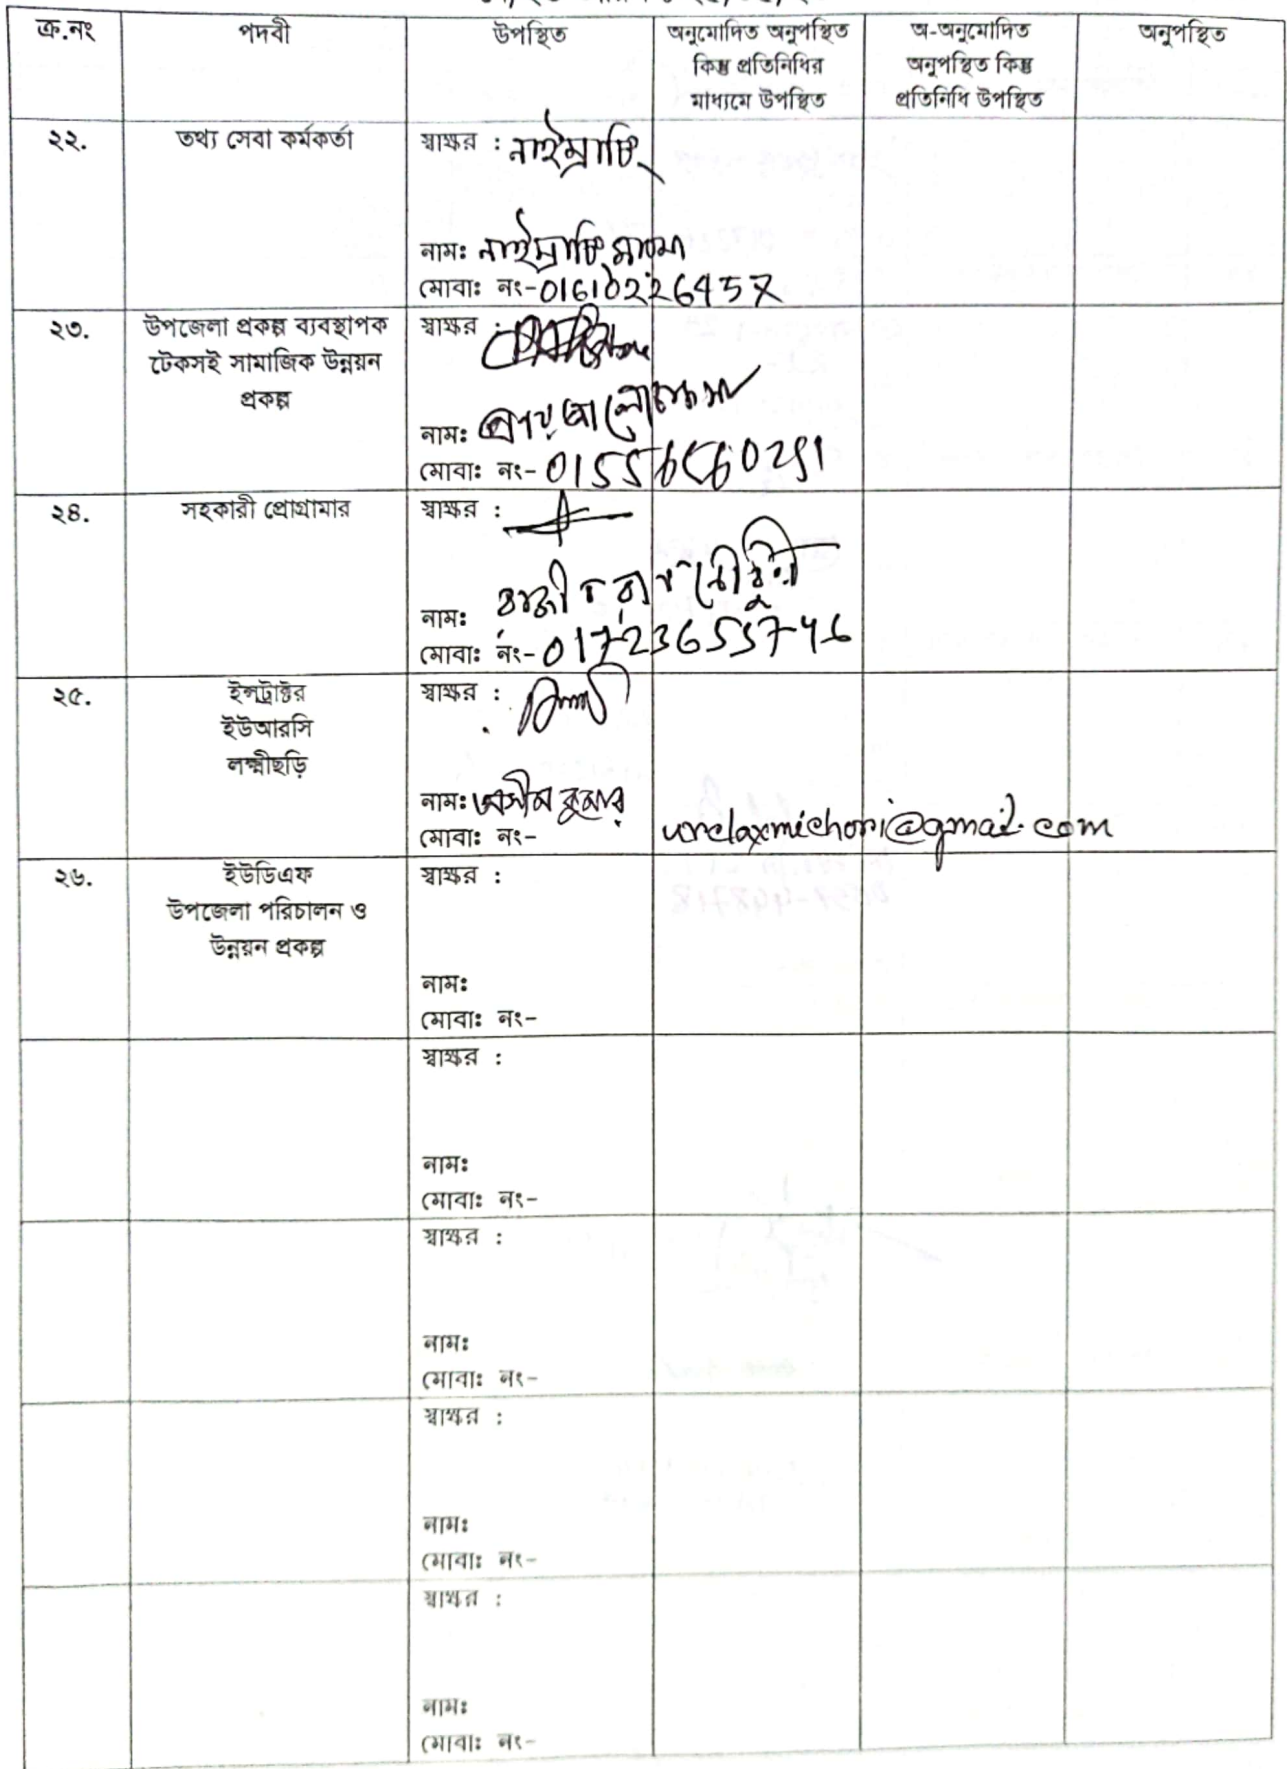 ক্র.নং পদবী উপস্থিত অনুমোদিত অনুপস্থিত কিন্তু প্রতিনিধির মাধ্যমে উপস্থিত অ-অনুমোদিত অনুপস্থিত কিন্তু প্রতিনিধি উপস্থিত অনুপস্থিত
২২. তথ্য সেবা কর্মকর্তা স্বাক্ষর : নাইম্রাচিং
নাম: নাইম্রাচিং মারমা
মোবা: নং-01610226457
২৩. উপজেলা প্রকল্প ব্যবস্থাপক স্বাক্ষর :
টেকসই সামাজিক উন্নয়ন
প্রকল্প
নাম:
মোবা: নং- 01556560291
২৪. সহকারী প্রোগ্রামার স্বাক্ষর :
নাম: চৌধুরী
মোবা: নং-01723655746
২৫. ইন্সট্রাক্টর স্বাক্ষর :
ইউআরসি
লক্ষ্মীছড়ি
নাম: অসীম কুমার
মোবা: নং- urclaxmichori@gmail.com
২৬. ইউডিএফ স্বাক্ষর :
উপজেলা পরিচালন ও
উন্নয়ন প্রকল্প
নাম:
মোবা: নং-
স্বাক্ষর :
নাম:
মোবা: নং-
স্বাক্ষর :
নাম:
মোবা: নং-
স্বাক্ষর :
নাম:
মোবা: নং-
স্বাক্ষর :
নাম:
মোবা: নং-